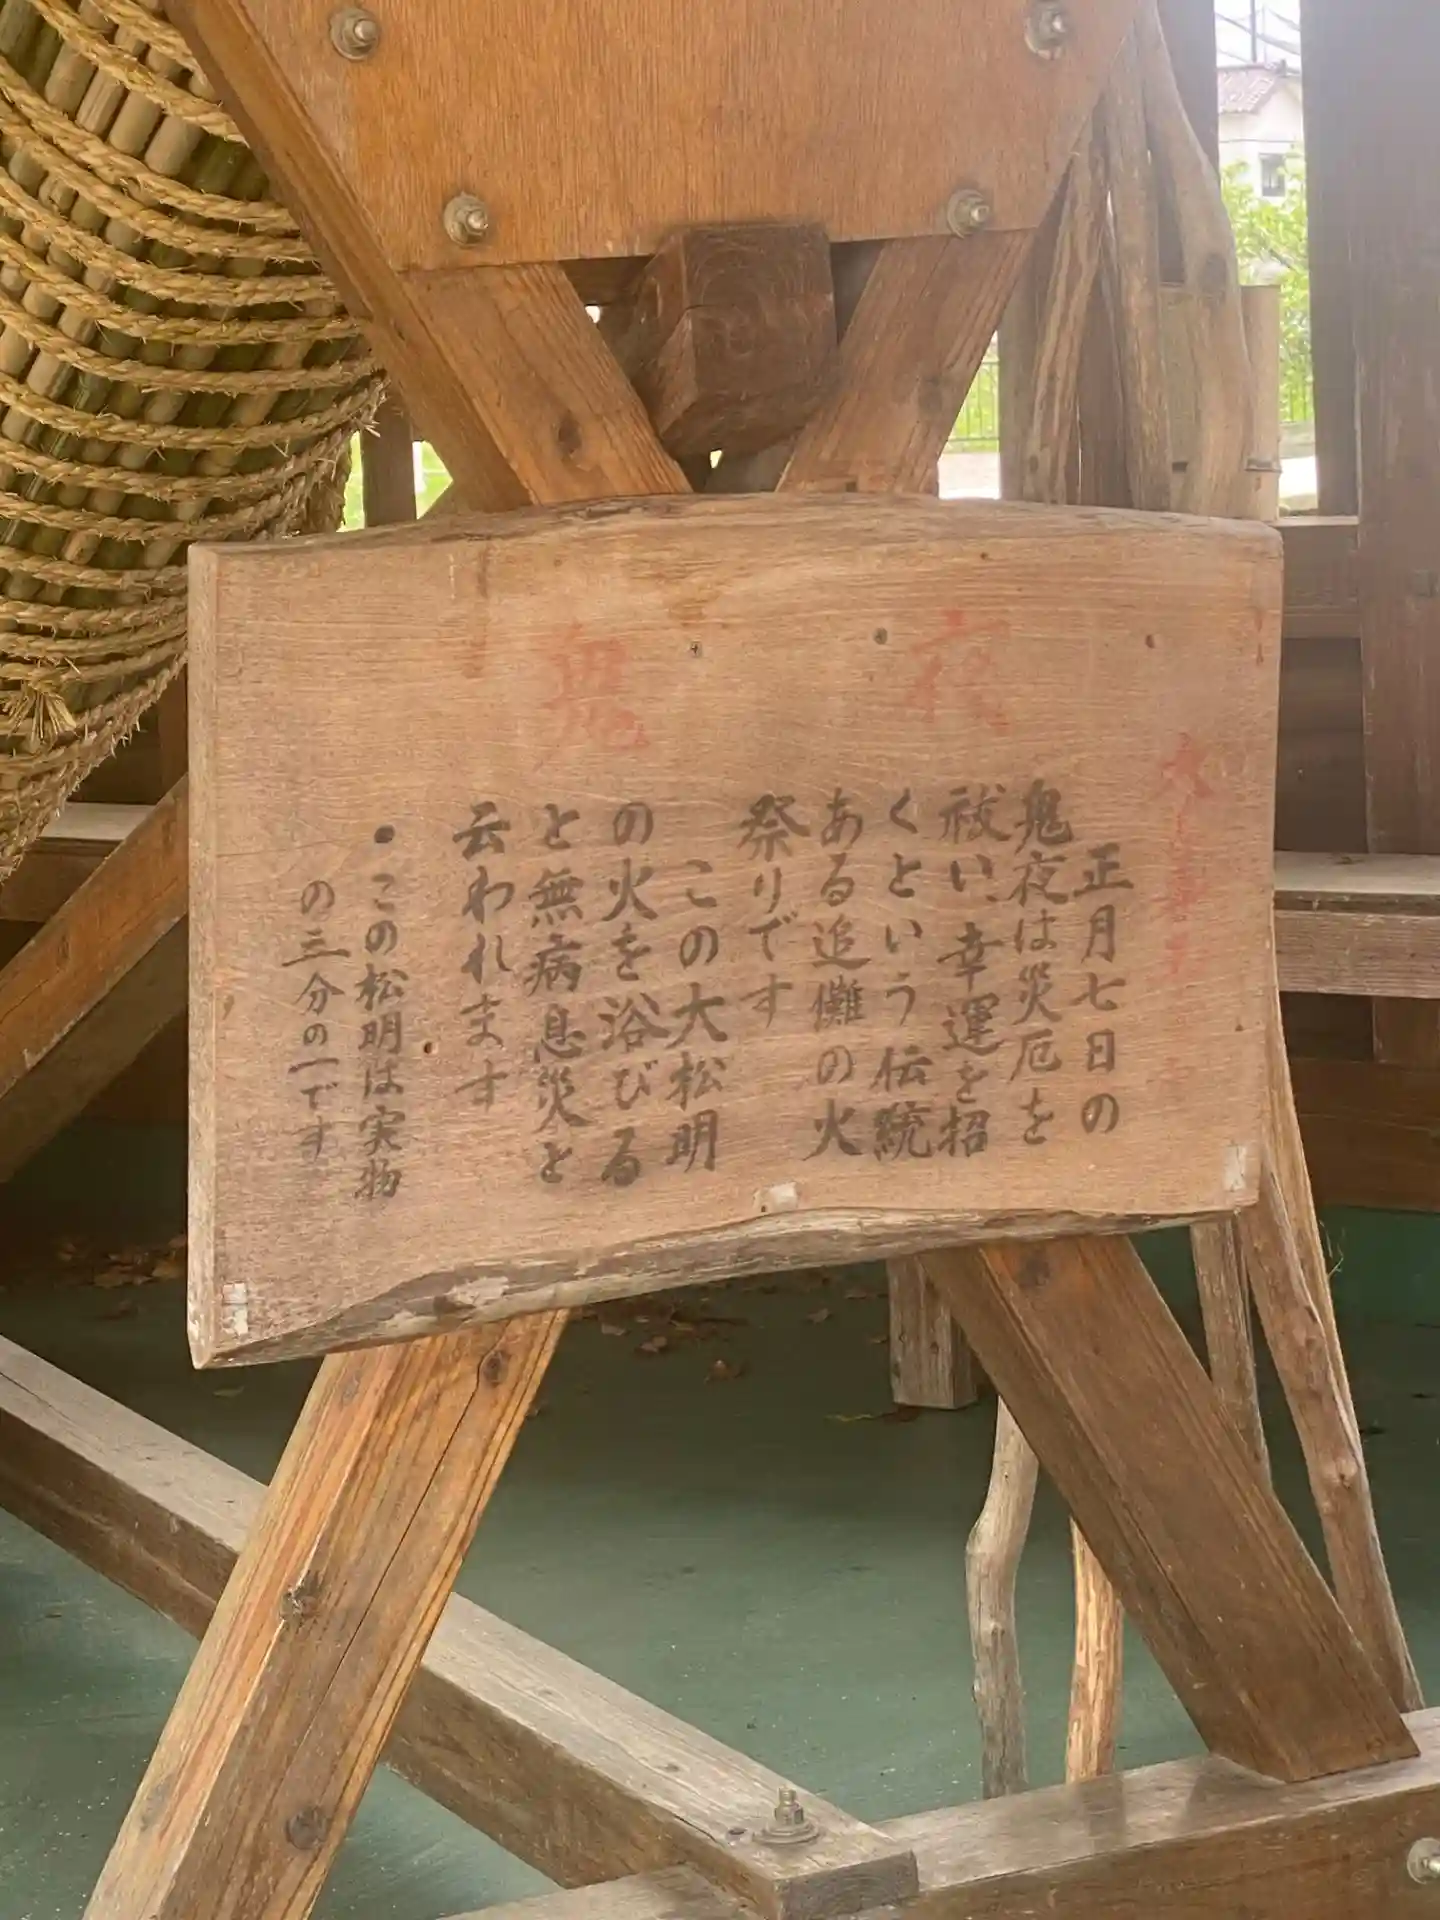 鬼夜
正月七日の
鬼夜は災厄を
祓い、幸運を招
くという伝統
ある追儺の火
祭りです
この大松明
の火を浴びる
と無病息災と
云われます
•この松明は実物
の三分の一です